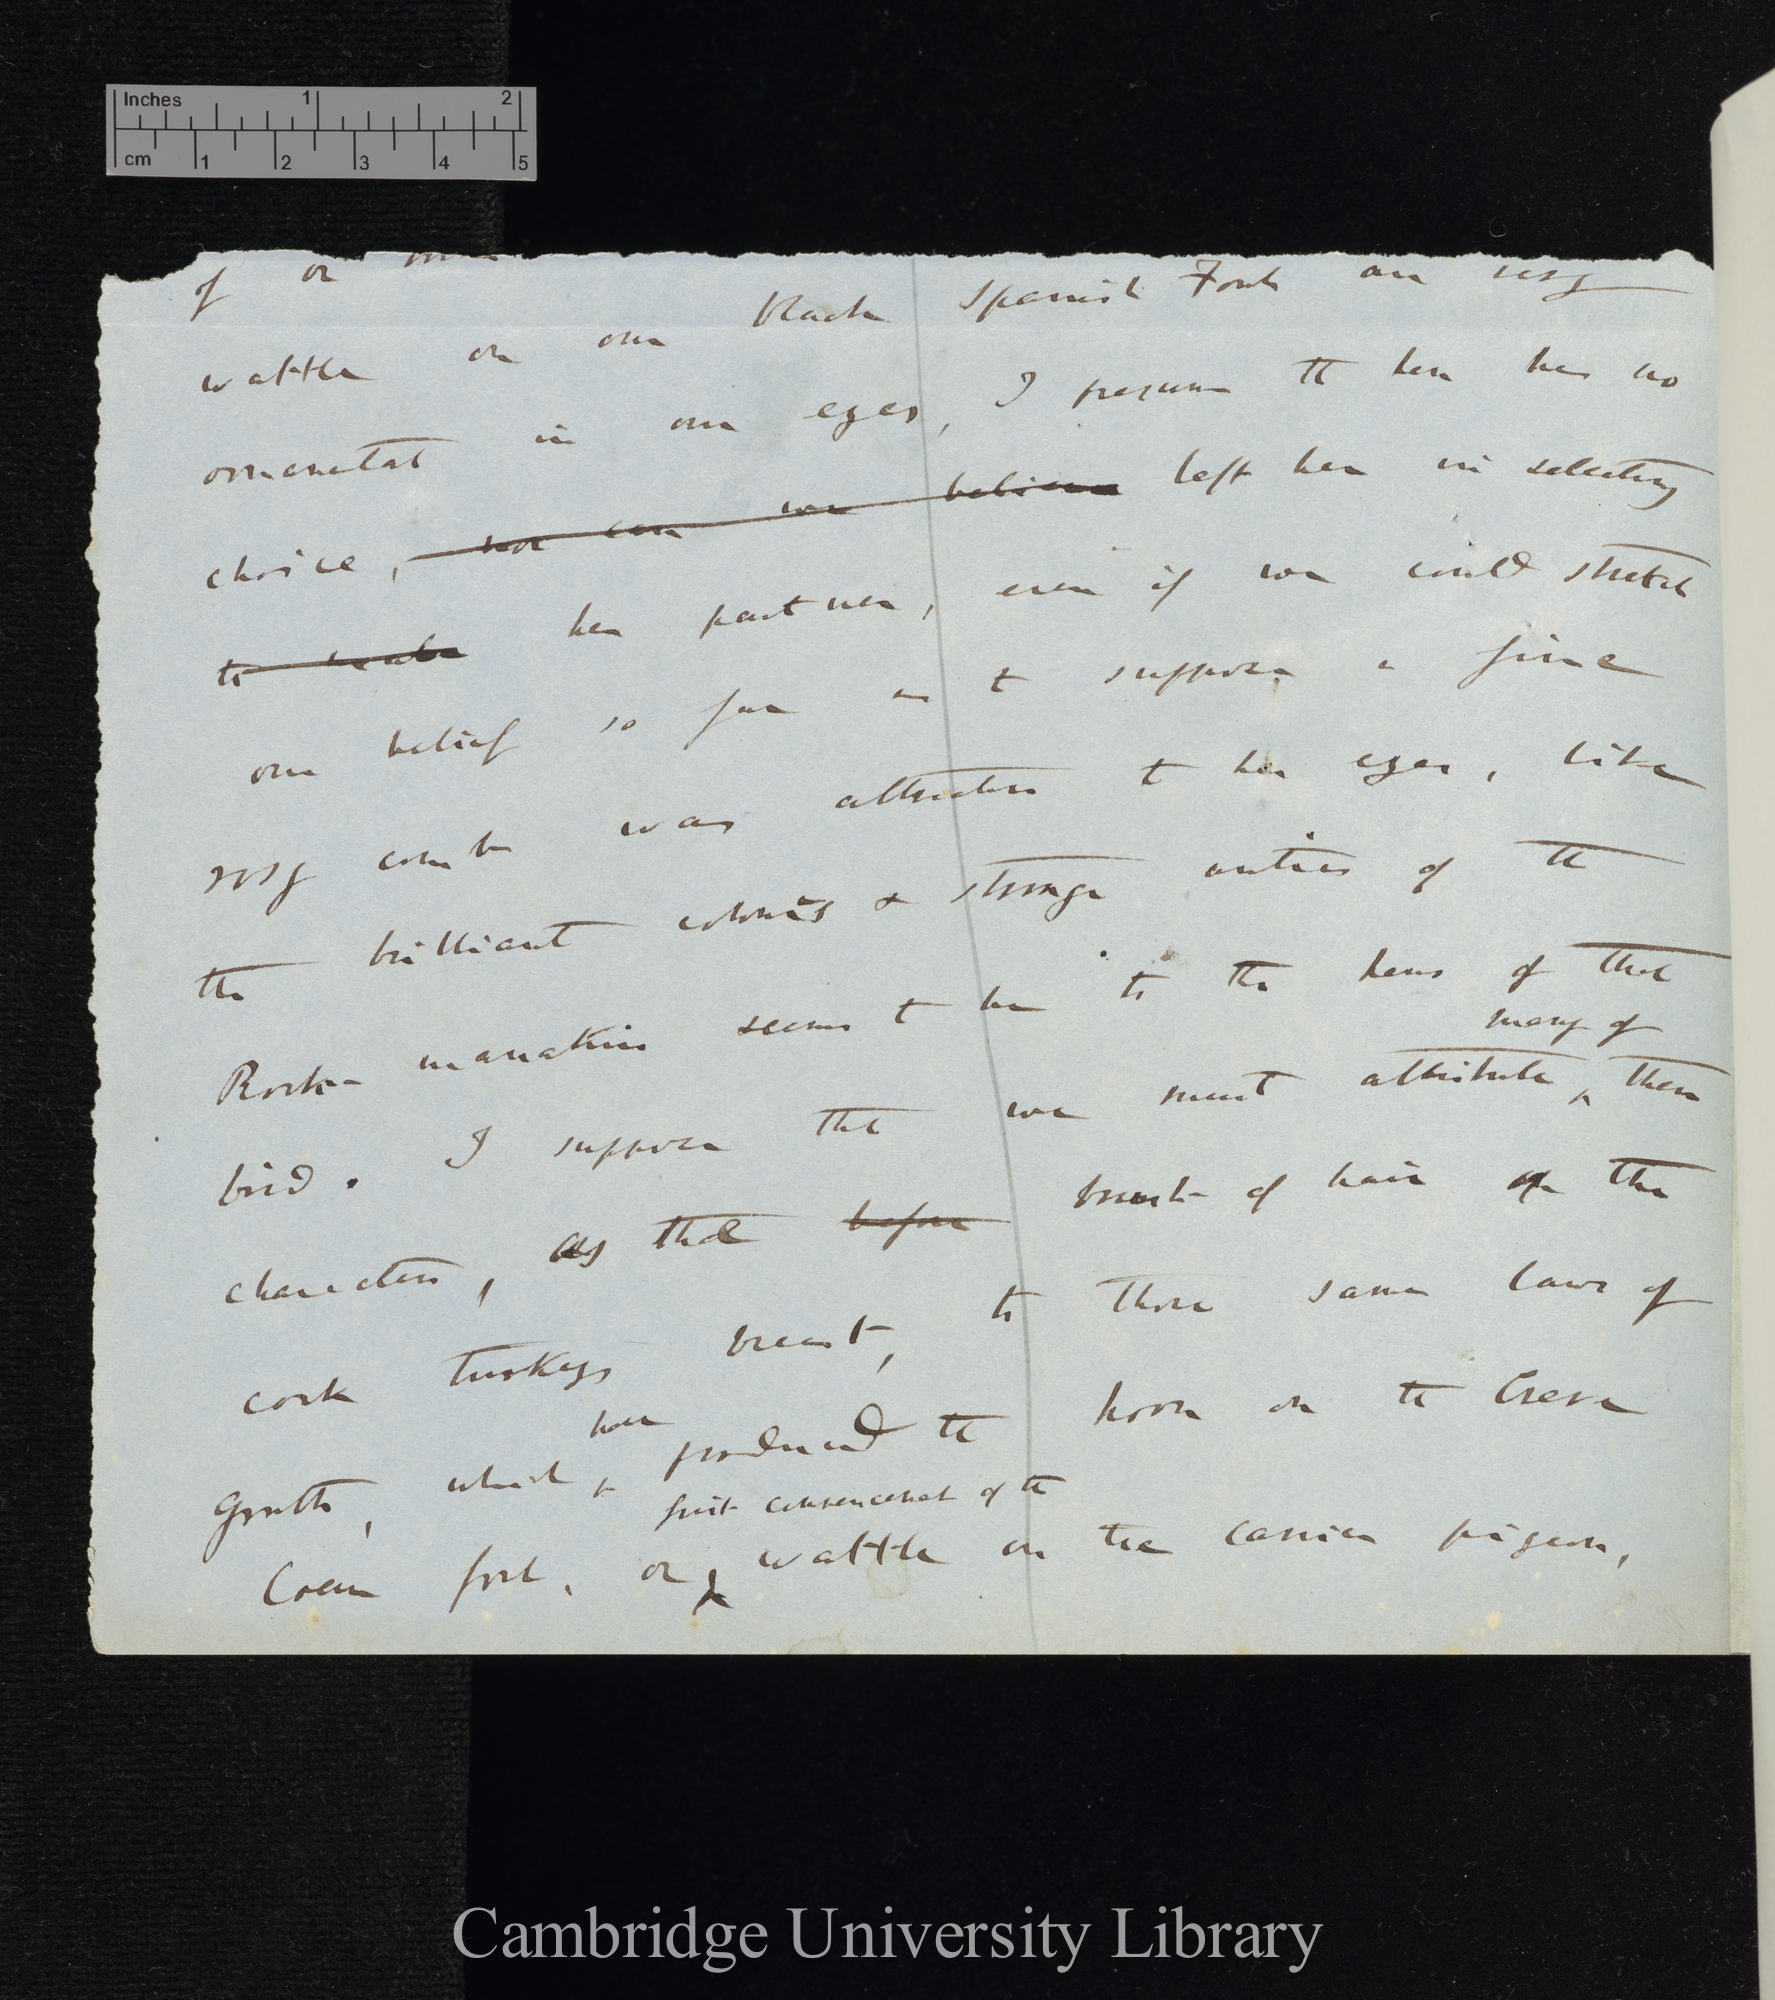 Inches 1 2
cm 1 2 3 4 5
of or
wattle on our Black Spanish Fowls are very
ornamental in our eyes, I presume the hen has no
choice, nor can we believe left her in selecting
to her partner, even if we could stretch
our belief so far as to suppose a fine
rosy comb was attractive to her eyes, like
the brilliant colours & strange antics of the
Rock manakin seems to be to the hens of that
bird. I suppose that we must attribute many of these
characters, as that before brush of hair on the
cock turkeys breast, to those same laws of
growth, which have produced the horn on the Creve
Coeur fowl, or first commencement of the wattle on the carrier pigeon,
Cambridge University Library